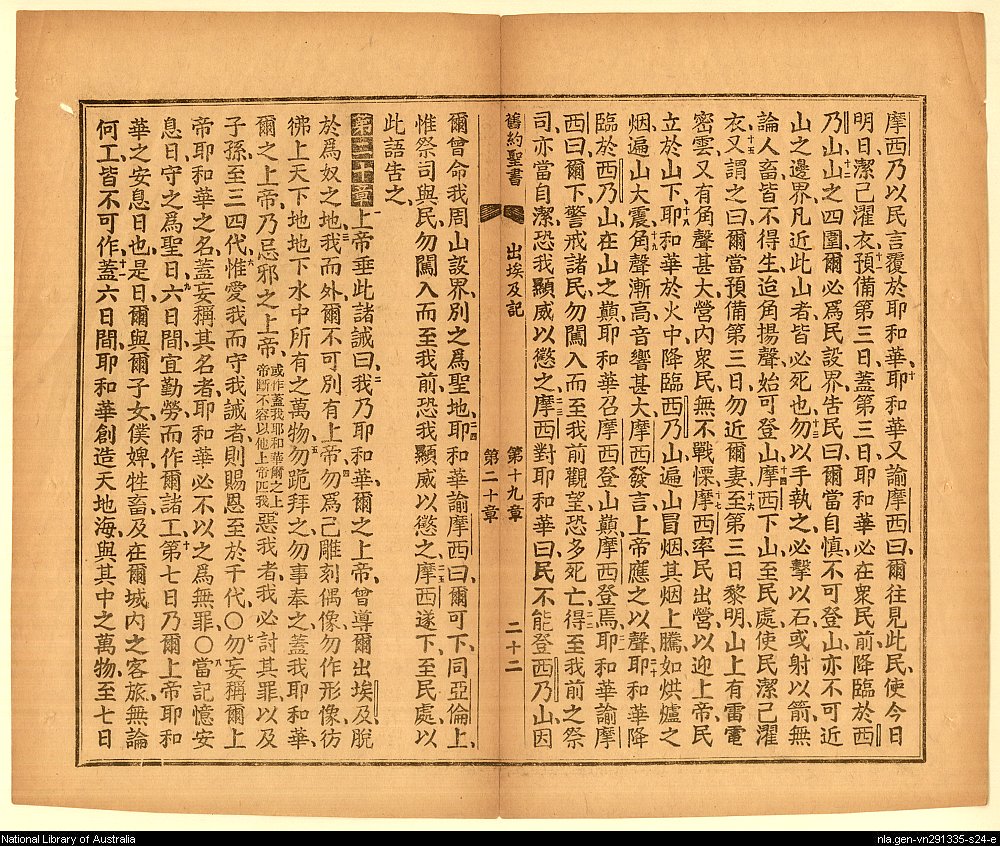 摩西乃以民言覆於耶和華、十耶和華又諭摩西曰、爾往見此民、使今日
明日、潔己濯衣、十一預備第三日、蓋第三日耶和華必在衆民前、降臨於西
乃山、十二山之四圍、爾必爲民設界、告民曰、爾當自愼、不可登山、亦不可近
山之邊界、凡近此山者、皆必死也、十三勿以手執之、必擊以石、或射以箭、無
論人畜、皆不得生、迨角揚聲、始可登山、十四摩西下山至民處、使民潔己濯
衣、十五又謂之曰、爾當預備第三日、勿近爾妻、十六至第三日黎明、山上有雷電
密雲、又有角聲甚大、營內衆民無不戰慄、十七摩西率民出營、以迎上帝、民
立於山下、十八耶和華於火中降臨西乃山、遍山冒烟、其烟上騰如烘爐之
烟、遍山大震、十九角聲漸高、音響甚大、摩西發言、上帝應之以聲、二十耶和華降
臨於西乃山、在山之巔、耶和華召摩西登山巔、摩西登焉、二一耶和華諭摩
西曰、爾下警戒諸民、勿闖入而至我前觀望、恐多死亡、二二得至我前之祭
司、亦當自潔、恐我顯威以懲之、二三摩西對耶和華曰、民不能登西乃山、因
舊約聖書 出埃及記 第十九章 第二十章 二十二
爾曾命我周山設界、別之爲聖地、二四耶和華諭摩西曰、爾可下、同亞倫上、
惟祭司與民、勿闖入而至我前、恐我顯威以懲之、二五摩西遂下、至民處、以
此語告之、
第二十章 一上帝垂此諸誡曰、二我乃耶和華爾之上帝、曾導爾出埃及、脫
於爲奴之地、三我而外、爾不可別有上帝、四勿爲己雕刻偶像、勿作形像、彷
彿上天下地、地下水中所有之萬物、五勿跪拜之、勿事奉之、蓋我耶和華
爾之上帝、乃忌邪之上帝、或作蓋我耶和華爾之上帝斷不容以他上帝匹我惡我者、我必討其罪、以及
子孫、至三四代、六惟愛我而守我誡者、則賜恩至於千代、〇七勿妄稱爾上
帝耶和華之名、蓋妄稱其名者、耶和華必不以之爲無罪、〇八當記憶安
息日、守之爲聖日、九六日間宜勤勞而作爾諸工、十第七日乃爾上帝耶和
華之安息日也、是日爾與爾子女、僕婢、牲畜、及在爾城內之客旅、無論
何工、皆不可作、十一蓋六日間、耶和華創造天地海、與其中之萬物、至七日
National Library of Australia
nla.gen-vn291335-s24-e